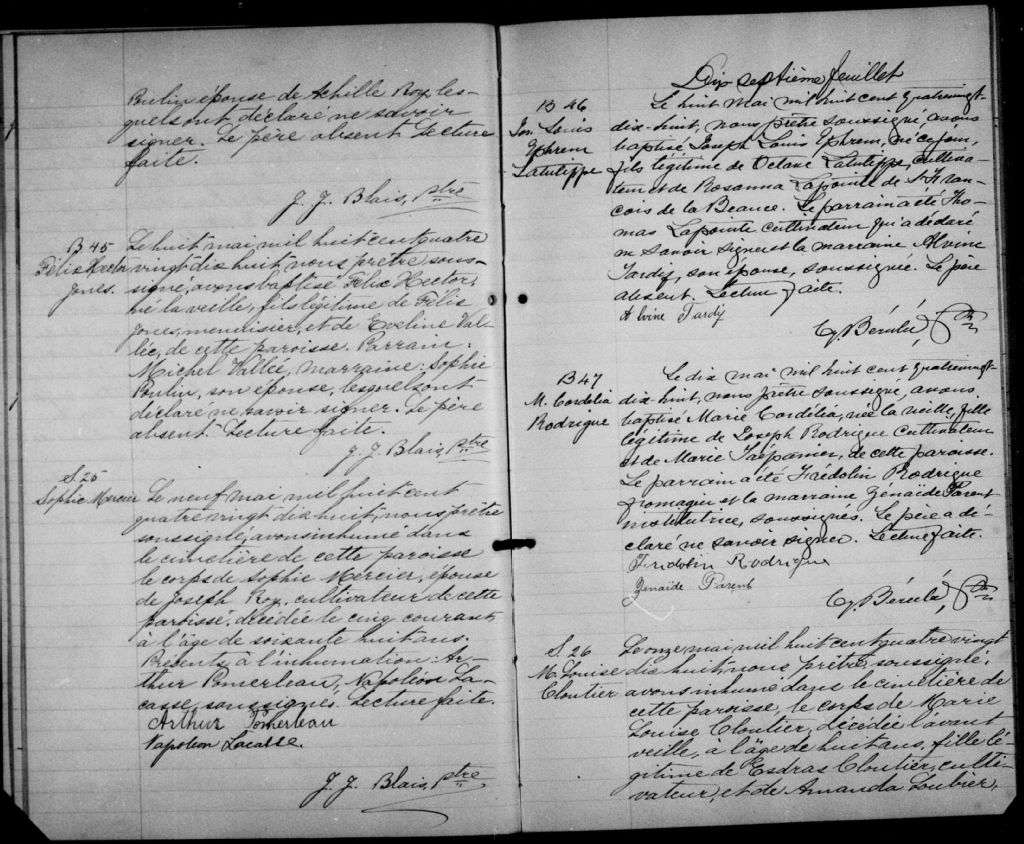 Poulin épouse de Achille Roy, les-
quels ont déclaré ne savoir
signer. Le père absent. Lecture
faite.
J. J. Blais, ptre
B 45
Félix Hector
Jones.
Le huit mai mil huit cent quatre
vingt dix huit, nous prêtre sous-
signé, avons baptisé Félix Hector,
né la veille, fils légitime de Félix
Jones, menuisier, et de Eveline Val-
lée, de cette paroisse. Parrain:
Michel Vallée, marraine: Sophie
Poulin, son épouse, lesquels ont
déclaré ne savoir signer. Le père
absent. Lecture faite.
J. J. Blais, Ptre
S. 25
Sophie Mercier
Le neuf mai mil huit cent
quatre vingt dix huit, nous prêtre
soussigné, avons inhumé dans
le cimetière de cette paroisse
le corps de Sophie Mercier, épouse
de Joseph Roy, cultivateur de cette
paroisse, décédée le cinq courant
à l'âge de soixante huit ans.
Présents à l'inhumation: Ar-
thur Pomerleau, Napoléon La-
casse, soussignés. Lecture faite.
Arthur Pomerleau
Napoléon Lacasse.
J. J. Blais, ptre
Dix septième feuillet
B 46
Jos. Louis
Ephrem
Latulippe
Le huit mai mil huit cent quatrevingt-
dix-huit, nous prêtre soussigné, avons
baptisé Joseph Louis Ephrem, né ce jour,
fils légitime de Octave Latulippe, cultiva-
teur et de Rosanna Lapointe de St Fran-
cois de la Beauce. Le parrain a été Tho-
mas Lapointe cultivateur qui a déclaré
ne savoir signer et la marraine Alvine
Tardif, son épouse, soussignée. Le père
absent. Lecture faite.
Alvine Tardif
Cy. Bérubé, Ptre
B 47
M. Cordélia
Rodrigue
Le dix mai mil huit cent quatrevingt-
dix-huit, nous prêtre soussigné, avons
baptisé Marie Cordélia, née la veille, fille
légitime de Joseph Rodrigue cultivateur
et de Marie Trépanier, de cette paroisse.
Le parrain a été Frédolin Rodrigue
fromagier et la marraine Génaïde Parent
institutrice, soussignés. Le père a dé-
claré ne savoir signer. Lecture faite.
Fridolin Rodrigue
Génaïde Parent
Cy. Bérubé, Ptre
S. 26
M. Louise
Cloutier
Le onze mai mil huit cent quatre vingt
dix huit, nous prêtre, soussigné,
avons inhumé dans le cimetière de
cette paroisse, le corps de Marie
Louise Cloutier, décédée l'avant
veille, a l'âge de huit ans, fille lé-
gitime de Esdras Cloutier, culti-
vateur, et de Amanda Loubier,